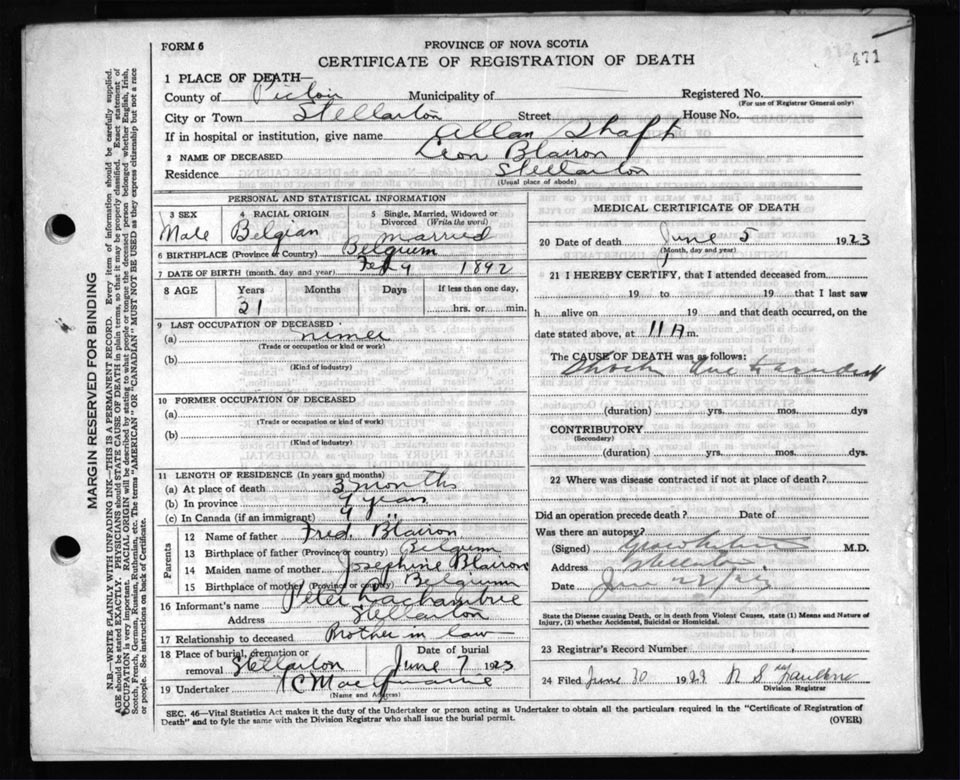 FORM 6
PROVINCE OF NOVA SCOTIA
CERTIFICATE OF REGISTRATION OF DEATH
471
1 PLACE OF DEATH—
County of Pictou Municipality of Registered No.
(For use of Registrar General only)
City or Town Stellarton Street House No.
If in hospital or institution, give name Allan Shaft
2 NAME OF DECEASED Leon Blairon
Residence Stellarton
(Usual place of abode)
PERSONAL AND STATISTICAL INFORMATION
3 SEX 4 RACIAL ORIGIN 5 Single, Married, Widowed or Divorced (Write the word)
Male Belgian Married
6 BIRTHPLACE (Province or Country) Belgium
7 DATE OF BIRTH (month, day and year) Feb 9 1892
8 AGE Years Months Days If less than one day,
21 hrs. or min.
9 LAST OCCUPATION OF DECEASED
(a) Miner
(Trade or occupation or kind or work)
(b)
(Kind of industry)
10 FORMER OCCUPATION OF DECEASED
(a)
(Trade or occupation or kind of work)
(b)
(Kind of industry)
11 LENGTH OF RESIDENCE (In years and months)
(a) At place of death 3 months
(b) In province 9 years
(c) In Canada (if an immigrant) 9 "
Parents
12 Name of father Fred. Blairon
13 Birthplace of father (Province or country) Belgium
14 Maiden name of mother Josephine Blairon
15 Birthplace of mother (Province or country) Belgium
16 Informant's name Peter Lachambre
Address Stellarton
17 Relationship to deceased Brother in law
18 Place of burial, cremation or removal Stellarton Date of burial June 7 1923
19 Undertaker
(Name and Address)
MEDICAL CERTIFICATE OF DEATH
20 Date of death June 5 1923
(Month, day and year)
21 I HEREBY CERTIFY, that I attended deceased from
19 to 19 that I last saw
h alive on 19 and that death occurred, on the
date stated above, at 11 A m.
The CAUSE OF DEATH was as follows:
Shock due
(duration) yrs. mos. dys
CONTRIBUTORY
(Secondary)
(duration) yrs. mos. dys.
22 Where was disease contracted if not at place of death?
Did an operation precede death? Date of
Was there an autopsy?
(Signed) M.D.
Address Stellarton
Date June
State the Disease causing Death, or in death from Violent Causes, state (1) Means and Nature of Injury, (2) whether Accidental, Suicidal or Homicidal.
23 Registrar's Record Number
24 Filed June 30 1923
Division Registrar
SEC. 46—Vital Statistics Act makes it the duty of the Undertaker or person acting as Undertaker to obtain all the particulars required in the "Certificate of Registration of
Death" and to fyle the same with the Division Registrar who shall issue the burial permit.
(OVER)
MARGIN RESERVED FOR BINDING
N.B.—WRITE PLAINLY WITH UNFADING INK—THIS IS A PERMANENT RECORD. Every item of information should be carefully supplied.
AGE should be stated EXACTLY. PHYSICIANS should STATE CAUSE OF DEATH in plain terms, so that it may be properly classified. Exact statement of
OCCUPATION is very important. RACIAL ORIGIN will be described by stating to what people or tongue the deceased person belonged whether English, Irish,
Scotch, French, German, Russian, Ruthenian, etc. The terms "AMERICAN" OR "CANADIAN" MUST NOT BE USED as they express citizenship but not a race
or people. See instructions on back of Certificate.